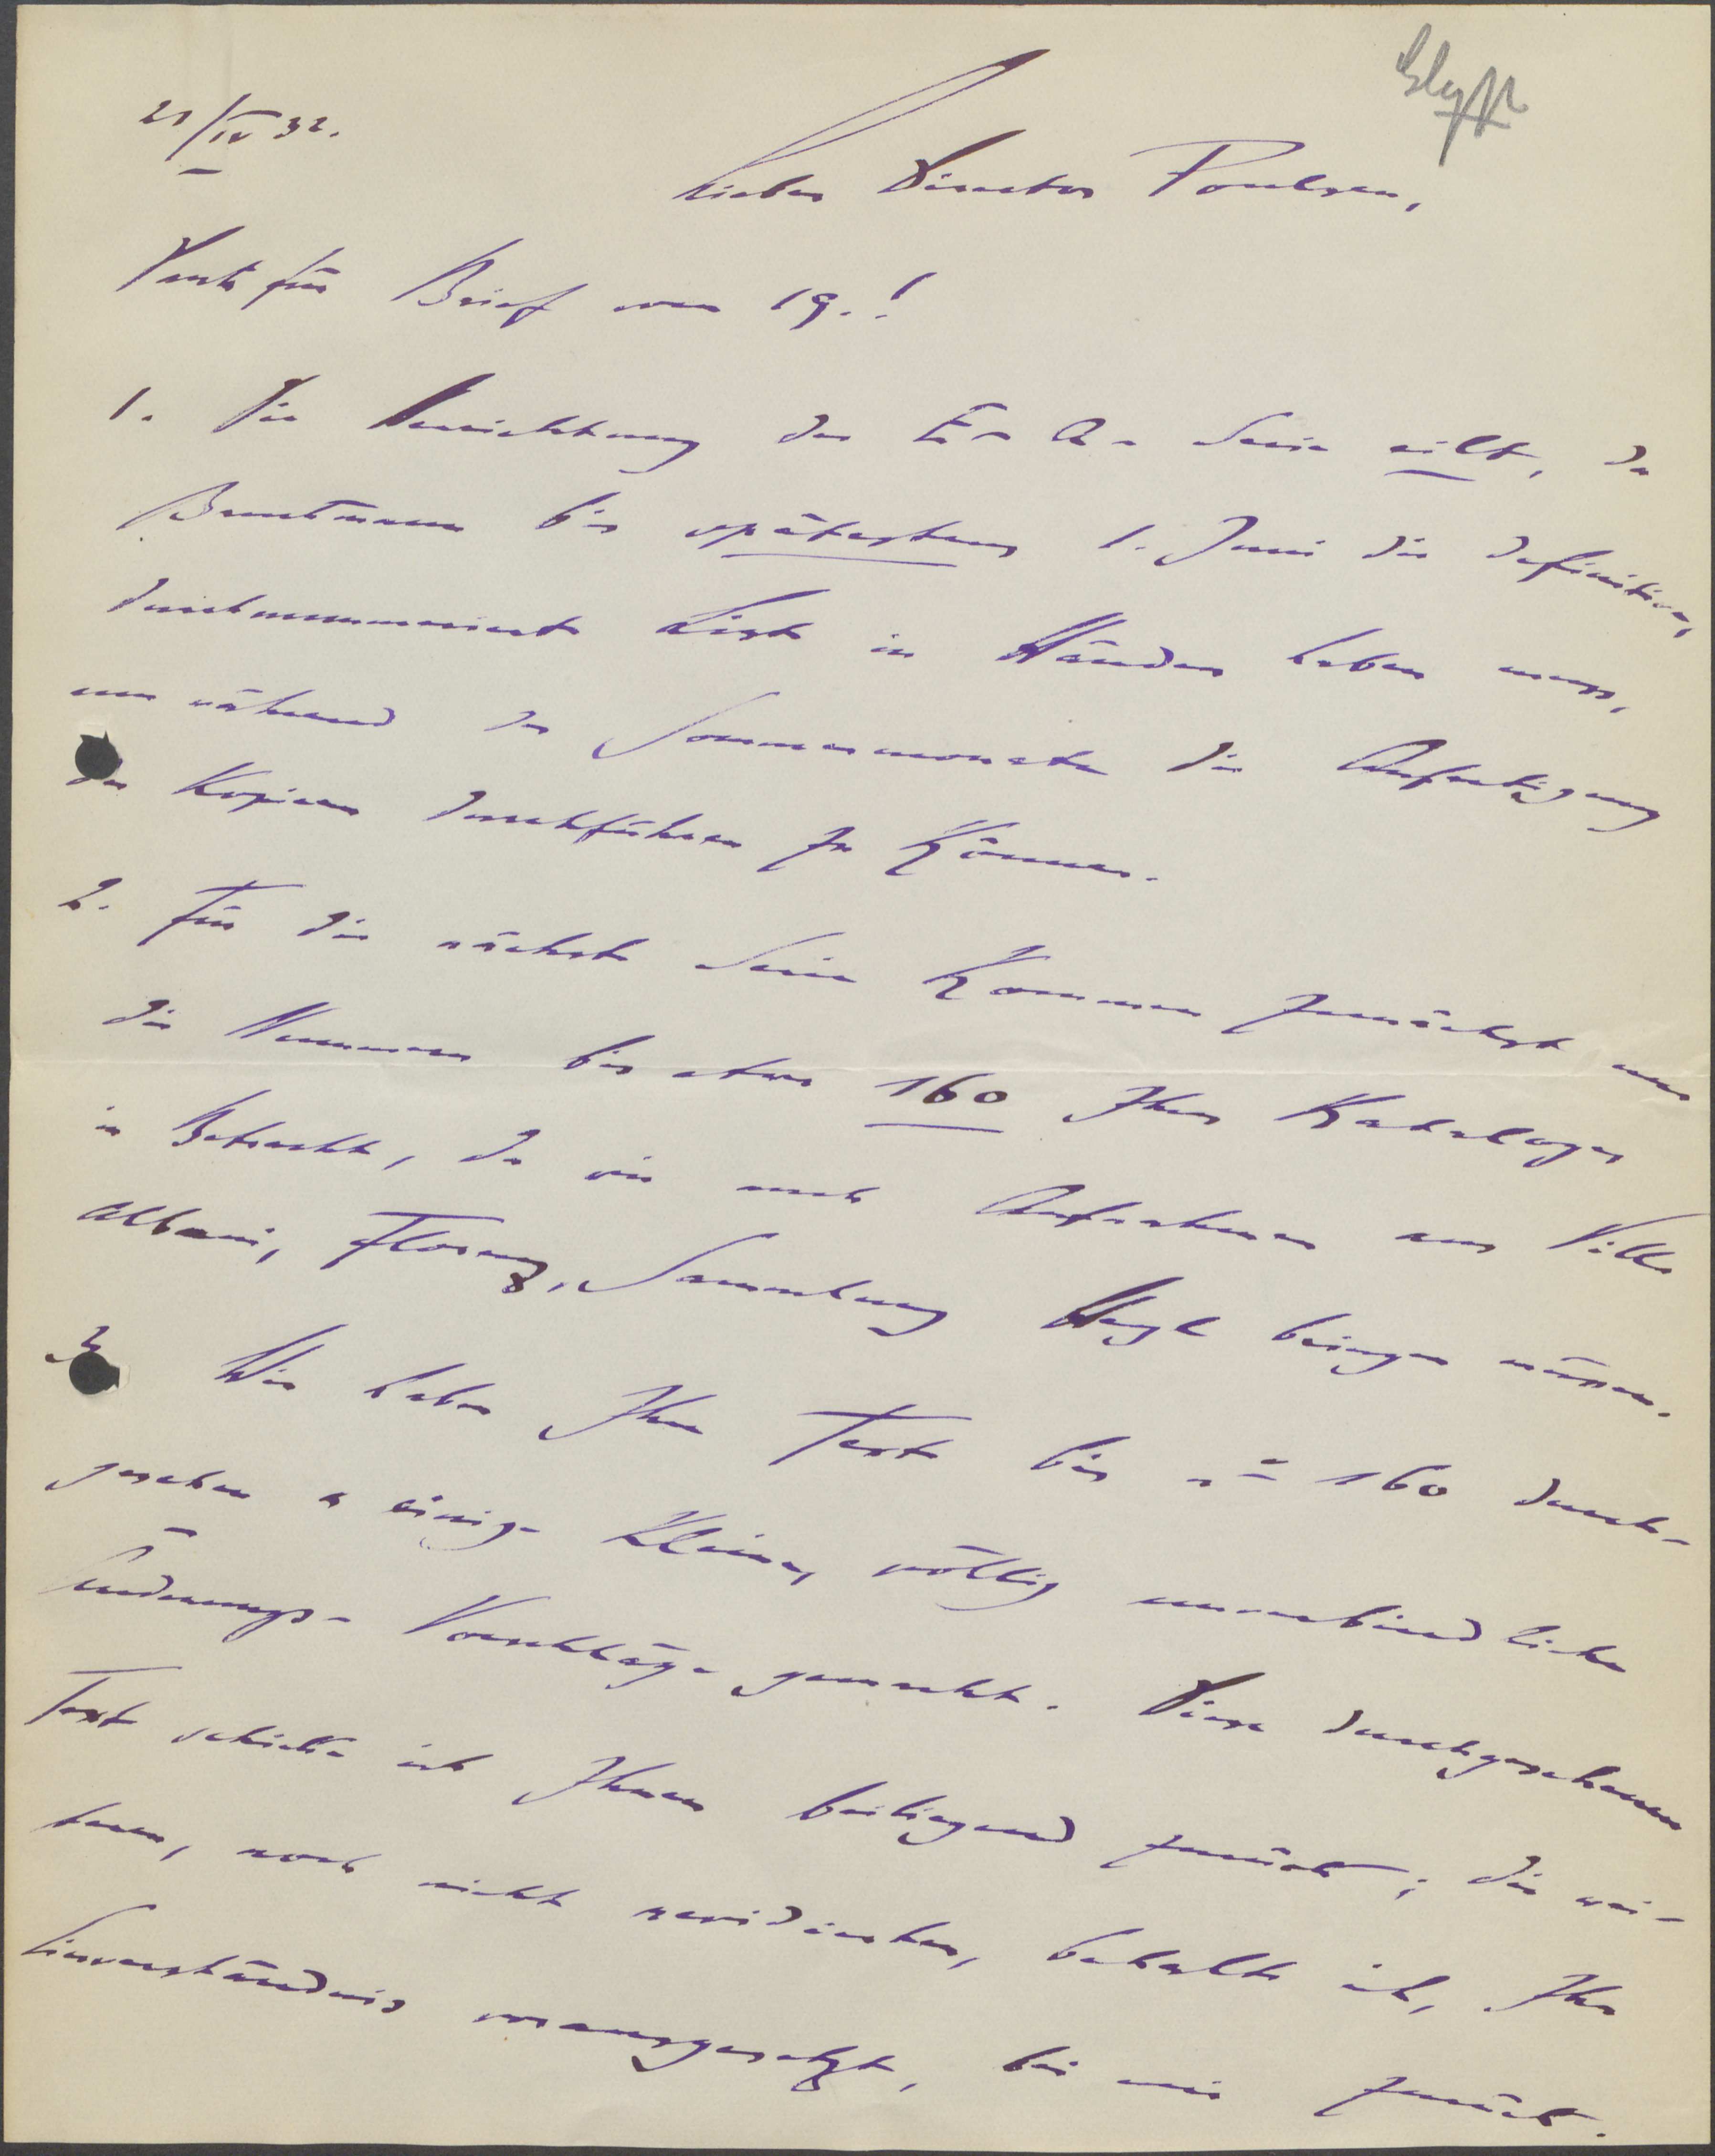 Glypt
21/IV 32.
Lieber Director Poulsen,
Dank für Brief vom 19.!
1. Die Vernichtung der E-A-Serie eilt, da
Bruckmann bis spätestens 1. Juni die definitive,
durchnummerierte Liste in Händen haben muss,
um während der Sommermonate die Anfertigung
der Kopieen durchführen zu können.
2. Für die nächste Serie kommen zunächst nur
die Nummern bis etwa 160 Ihres Kataloges
in Betracht, da wir noch Aufnahmen aus Villa
Albani, Florenz, Sammlung Weyl bringen müssen.
3 Wir haben Ihren Text bis n° 160 durch-
gesehen u einige kleine, völlig unverbindliche
Änderungs-Vorschläge gemacht. Diesen durchgesehenen
Text schicke ich Ihnen beiliegend zurück; die wei-
teren, noch nicht revidierten, behalte ich, Ihr
Einverständnis vorausgesetzt, bei mir zurück.